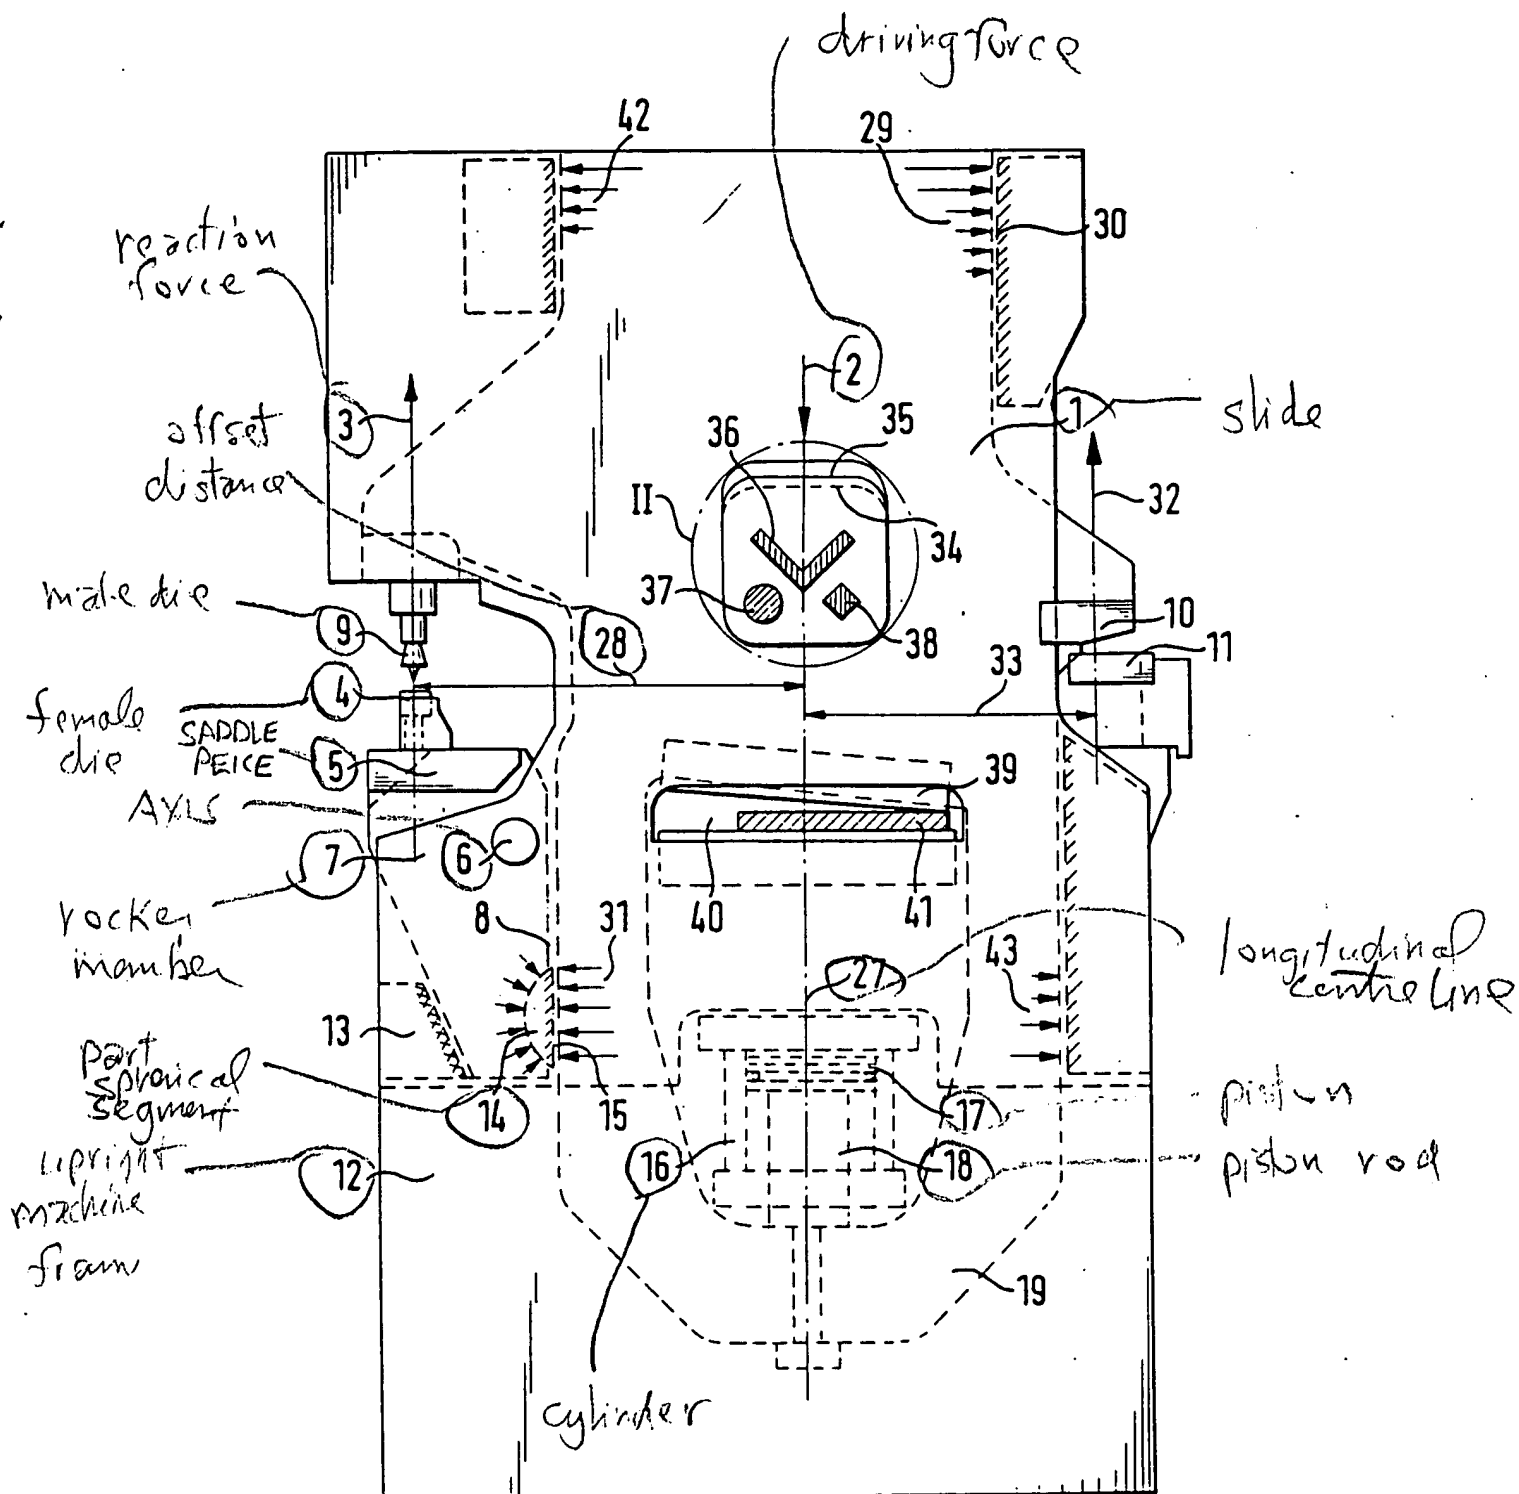 driving force
42
29
30
reaction
force
3
2
1
slide
offset
distance
36
35
II
34
32
37
38
male die
9
28
10
11
33
female
die
4
SADDLE
PEICE
5
39
AXIS
6
7
40
41
rocker
mamber
8
31
43
27
longitudinal
centre line
13
part
spherical
segment
14
15
17
piston
upright
machine
fram
12
16
18
piston rod
19
cylinder